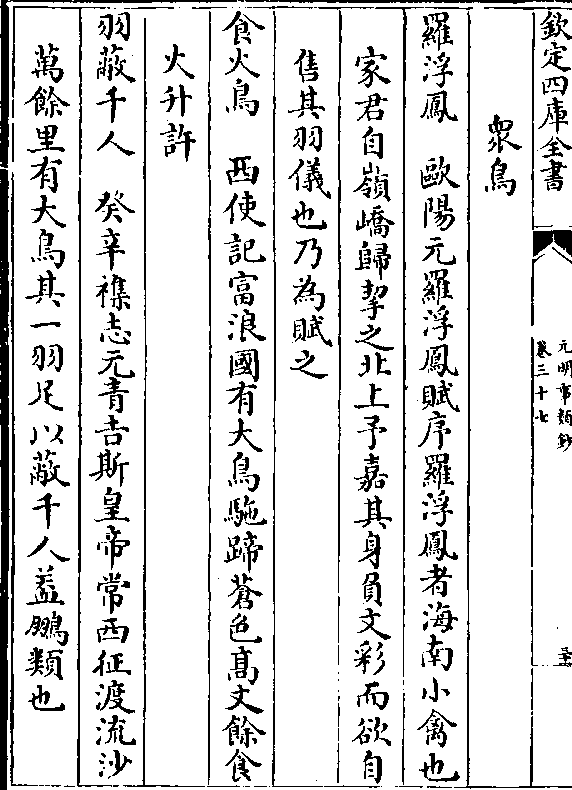 欽定四庫全書
元明事類鈔
卷三十七
衆鳥
羅浮鳳　歐陽元羅浮鳳賦序羅浮鳳者海南小禽也
家君自嶺嶠歸挈之北上予嘉其身負文彩而欲自
售其羽儀也乃為賦之
食火鳥　西使記富浪國有大鳥駞蹄蒼色髙丈餘食
火升許
羽蔽千人　癸辛襍志元青吉斯皇帝常西征渡流沙
萬餘里有大鳥其一羽足以蔽千人蓋鵬類也